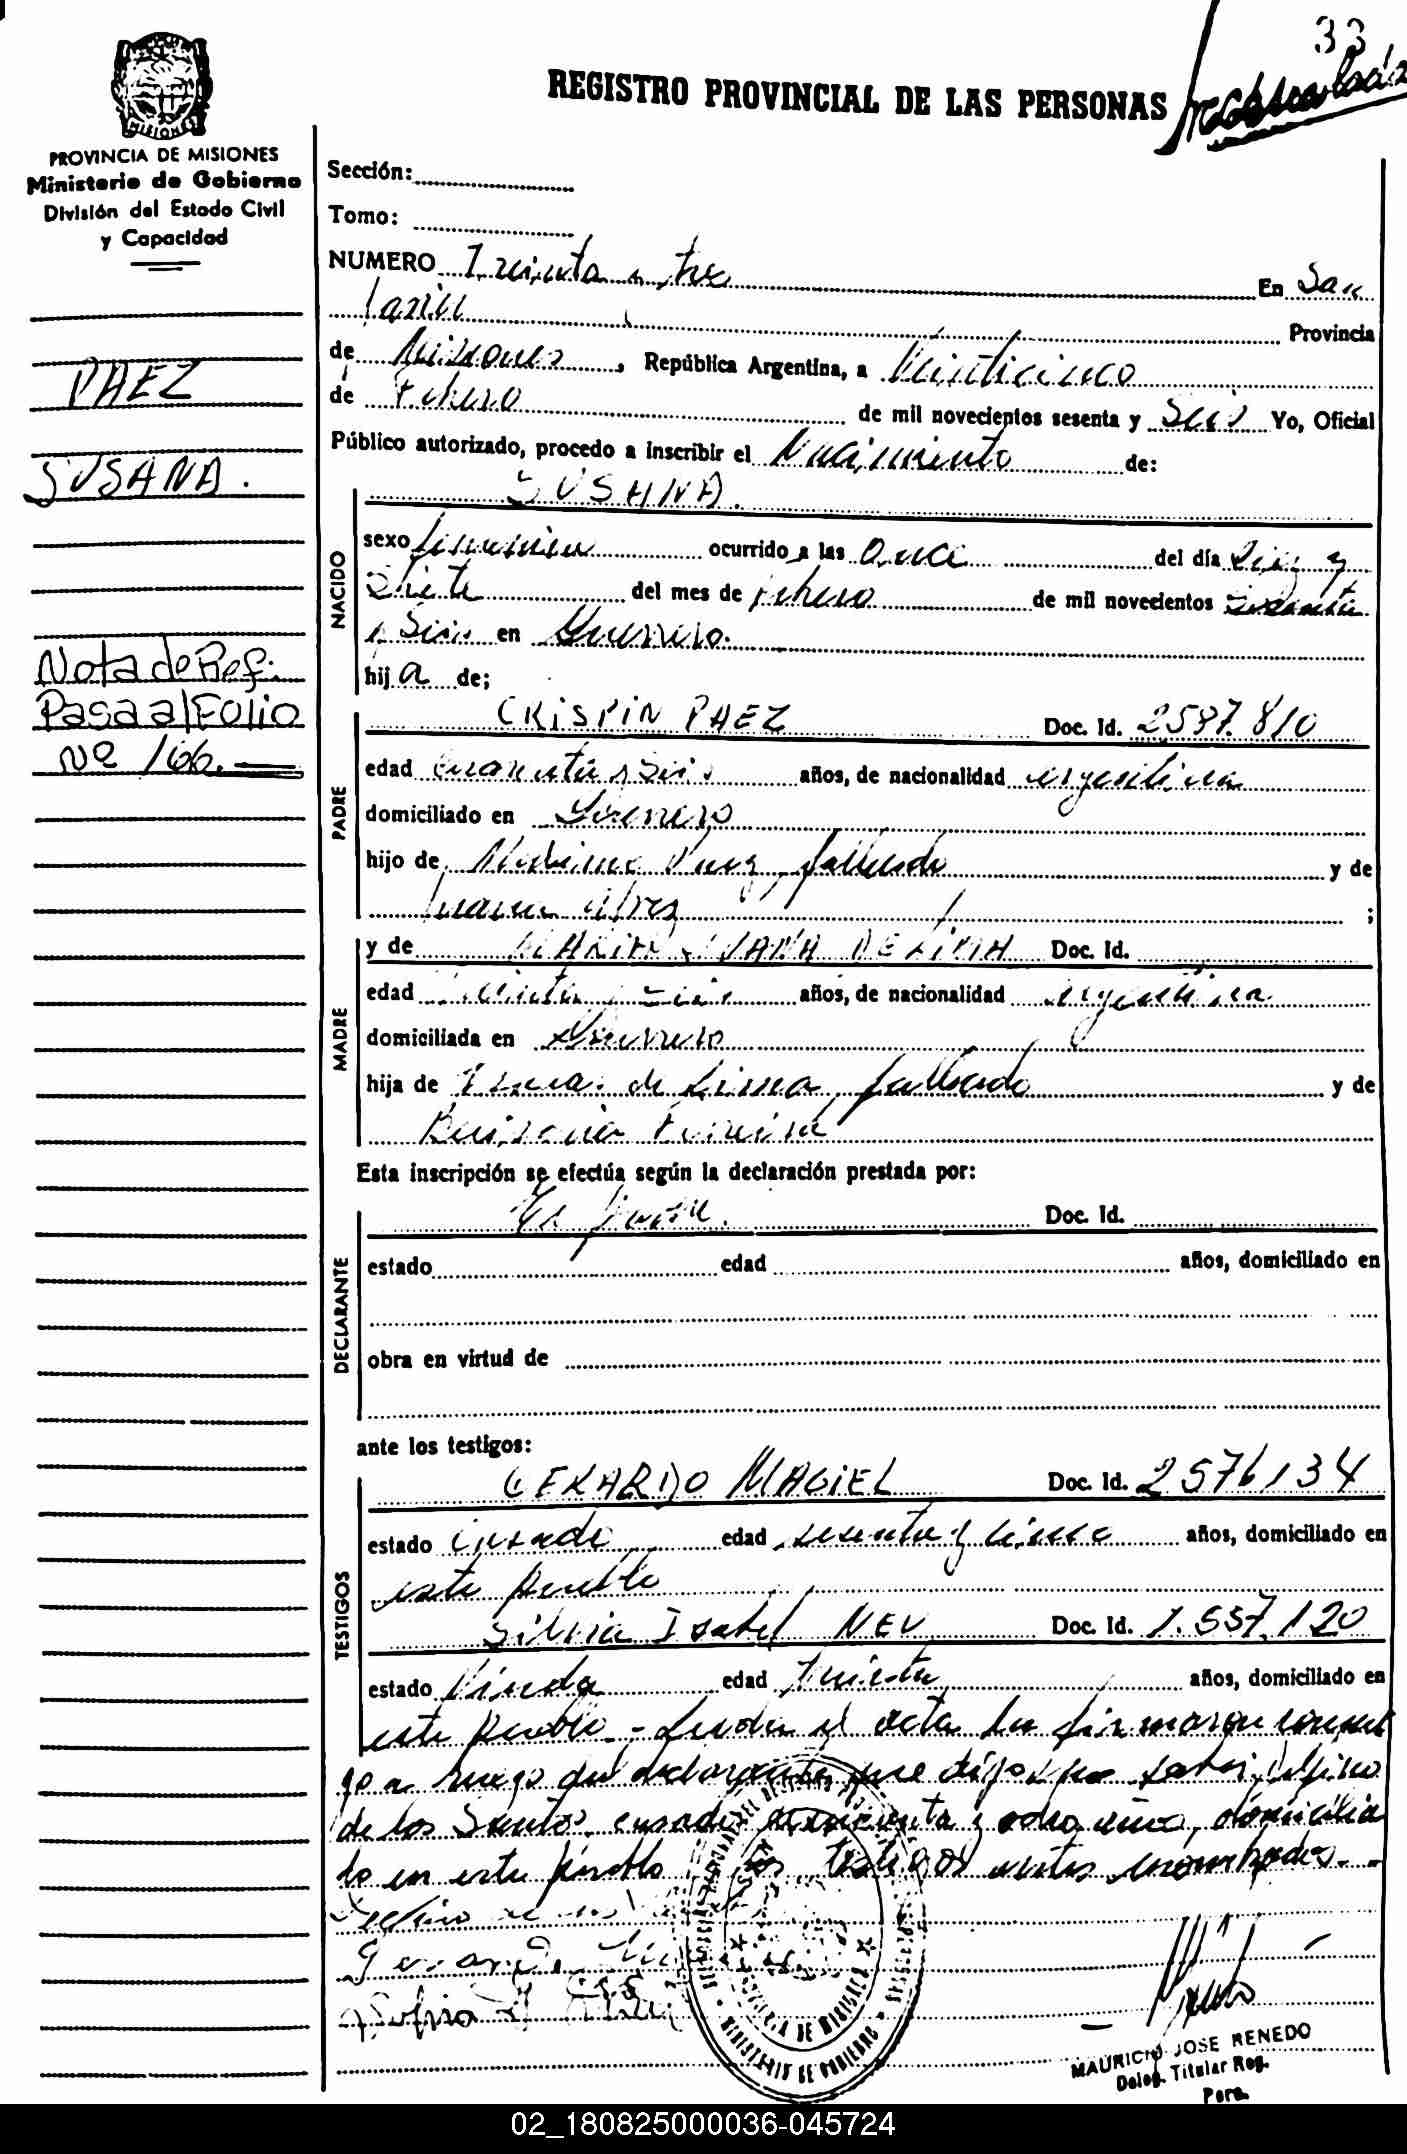 33
REGISTRO PROVINCIAL DE LAS PERSONAS
MISIONES
PROVINCIA DE MISIONES
Ministerio de Gobierno
División del Estado Civil
y Capacidad
PAEZ
SUSANA.
Nota de Ref:
Pasa al Folio
Nº 166.
Sección:
Tomo:
NUMERO Treinta y tres En San
Javier Provincia
de Misiones, República Argentina, a Veinticinco
de Febrero de mil novecientos sesenta y Seis Yo, Oficial
Público autorizado, procedo a inscribir el Nacimiento de:
SUSANA.
NACIDO
sexo femenino ocurrido a las Once del día Diez y
Siete del mes de febrero de mil novecientos Sesenta
y Seis en Guerrero.
hija de;
PADRE
CRISPIN PAEZ Doc. Id. 2587.810
edad Cuarenta y Seis años, de nacionalidad argentina
domiciliado en Guerrero
hijo de Paez, fallecido y de
Juana ;
MADRE
y de MARIA JUANA DE LIMA Doc. Id.
edad Treinta y Seis años, de nacionalidad argentina
domiciliada en Guerrero
hija de de Lima, fallecido y de
Ferreira
Esta inscripción se efectúa según la declaración prestada por:
DECLARANTE
El padre. Doc. Id.
estado edad años, domiciliado en
obra en virtud de
ante los testigos:
TESTIGOS
GERARDO MACIEL Doc. Id. 2576134
estado Casado edad sesenta y cinco años, domiciliado en
este pueblo
Silvia Isabel NEU Doc. Id. 1.557.120
estado Viuda edad Treinta años, domiciliado en
este pueblo - Leida el acta la firmaron conmi
go a ruego del declarante que dijo no saber, Delfino
de los Santos, casado, cincuenta y ocho años, domicilia
do en este pueblo y los testigos antes nombrados.-
MINISTERIO DE GOBIERNO
PROVINCIA DE MISIONES
MAURICIO JOSE RENEDO
Deleg. Titular Reg.
Pers.
02_180825000036-045724